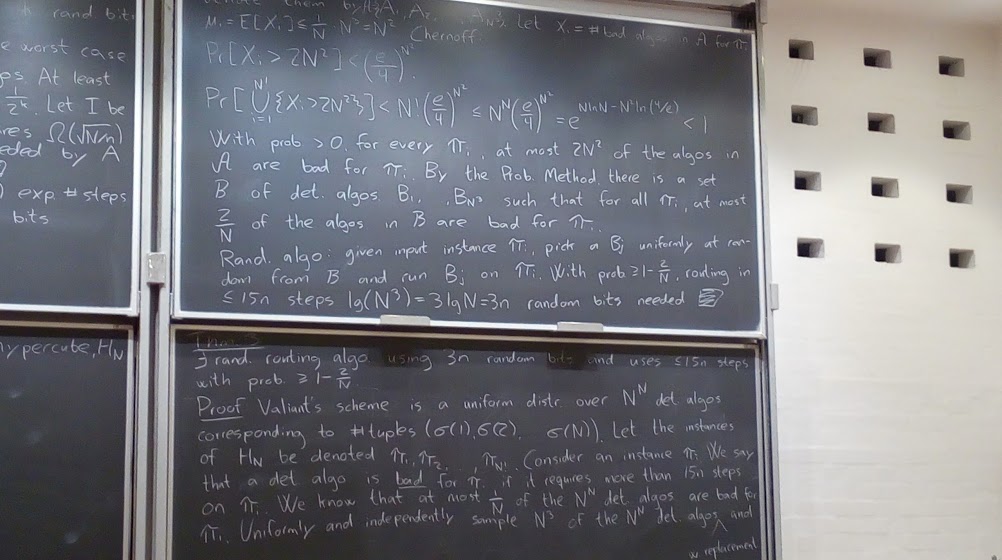 h rand bits
e worst case
ps. At least
1/2^k. Let I be
res Ω(√N/n)
eded by A
) exp. # steps
bits
hypercube, H_N
denote them by A_1, A_2, A_N³. Let X_i = # bad algos in A for π_i
μ_i = E[X_i] ≤ 1/N N³ = N². Chernoff:
Pr[X_i > 2N²] < (e/4)^N².
Pr[⋃_{i=1}^{N!} {X_i > 2N²}] < N! (e/4)^N² ≤ N^N (e/4)^N² = e^{N ln N - N² ln(4/e)} < 1
With prob. > 0, for every π_i, at most 2N² of the algos in
A are bad for π_i. By the Prob. Method, there is a set
B of det. algos B_1, , B_N³ such that for all π_i, at most
2/N of the algos in B are bad for π_i.
Rand. algo: given input instance π_i, pick a B_j uniformly at ran-
dom from B and run B_j on π_i. With prob ≥ 1-2/N, routing in
≤ 15n steps lg(N³) = 3 lg N = 3n random bits needed
Thm. 3
∃ rand. routing algo using 3n random bits and uses ≤ 15n steps
with prob. ≥ 1-2/N.
Proof Valiant's scheme is a uniform distr. over N^N det. algos
corresponding to # tuples (σ(1), σ(2), σ(N)). Let the instances
of H_N be denoted π_1, π_2, , π_N!. Consider an instance π_i. We say
that a det algo is bad for π_i if it requires more than 15n steps
on π_i. We know that at most 1/N of the N^N det. algos are bad for
π_i. Uniformly and independently sample N³ of the N^N det. algos ∧ and
w replacement